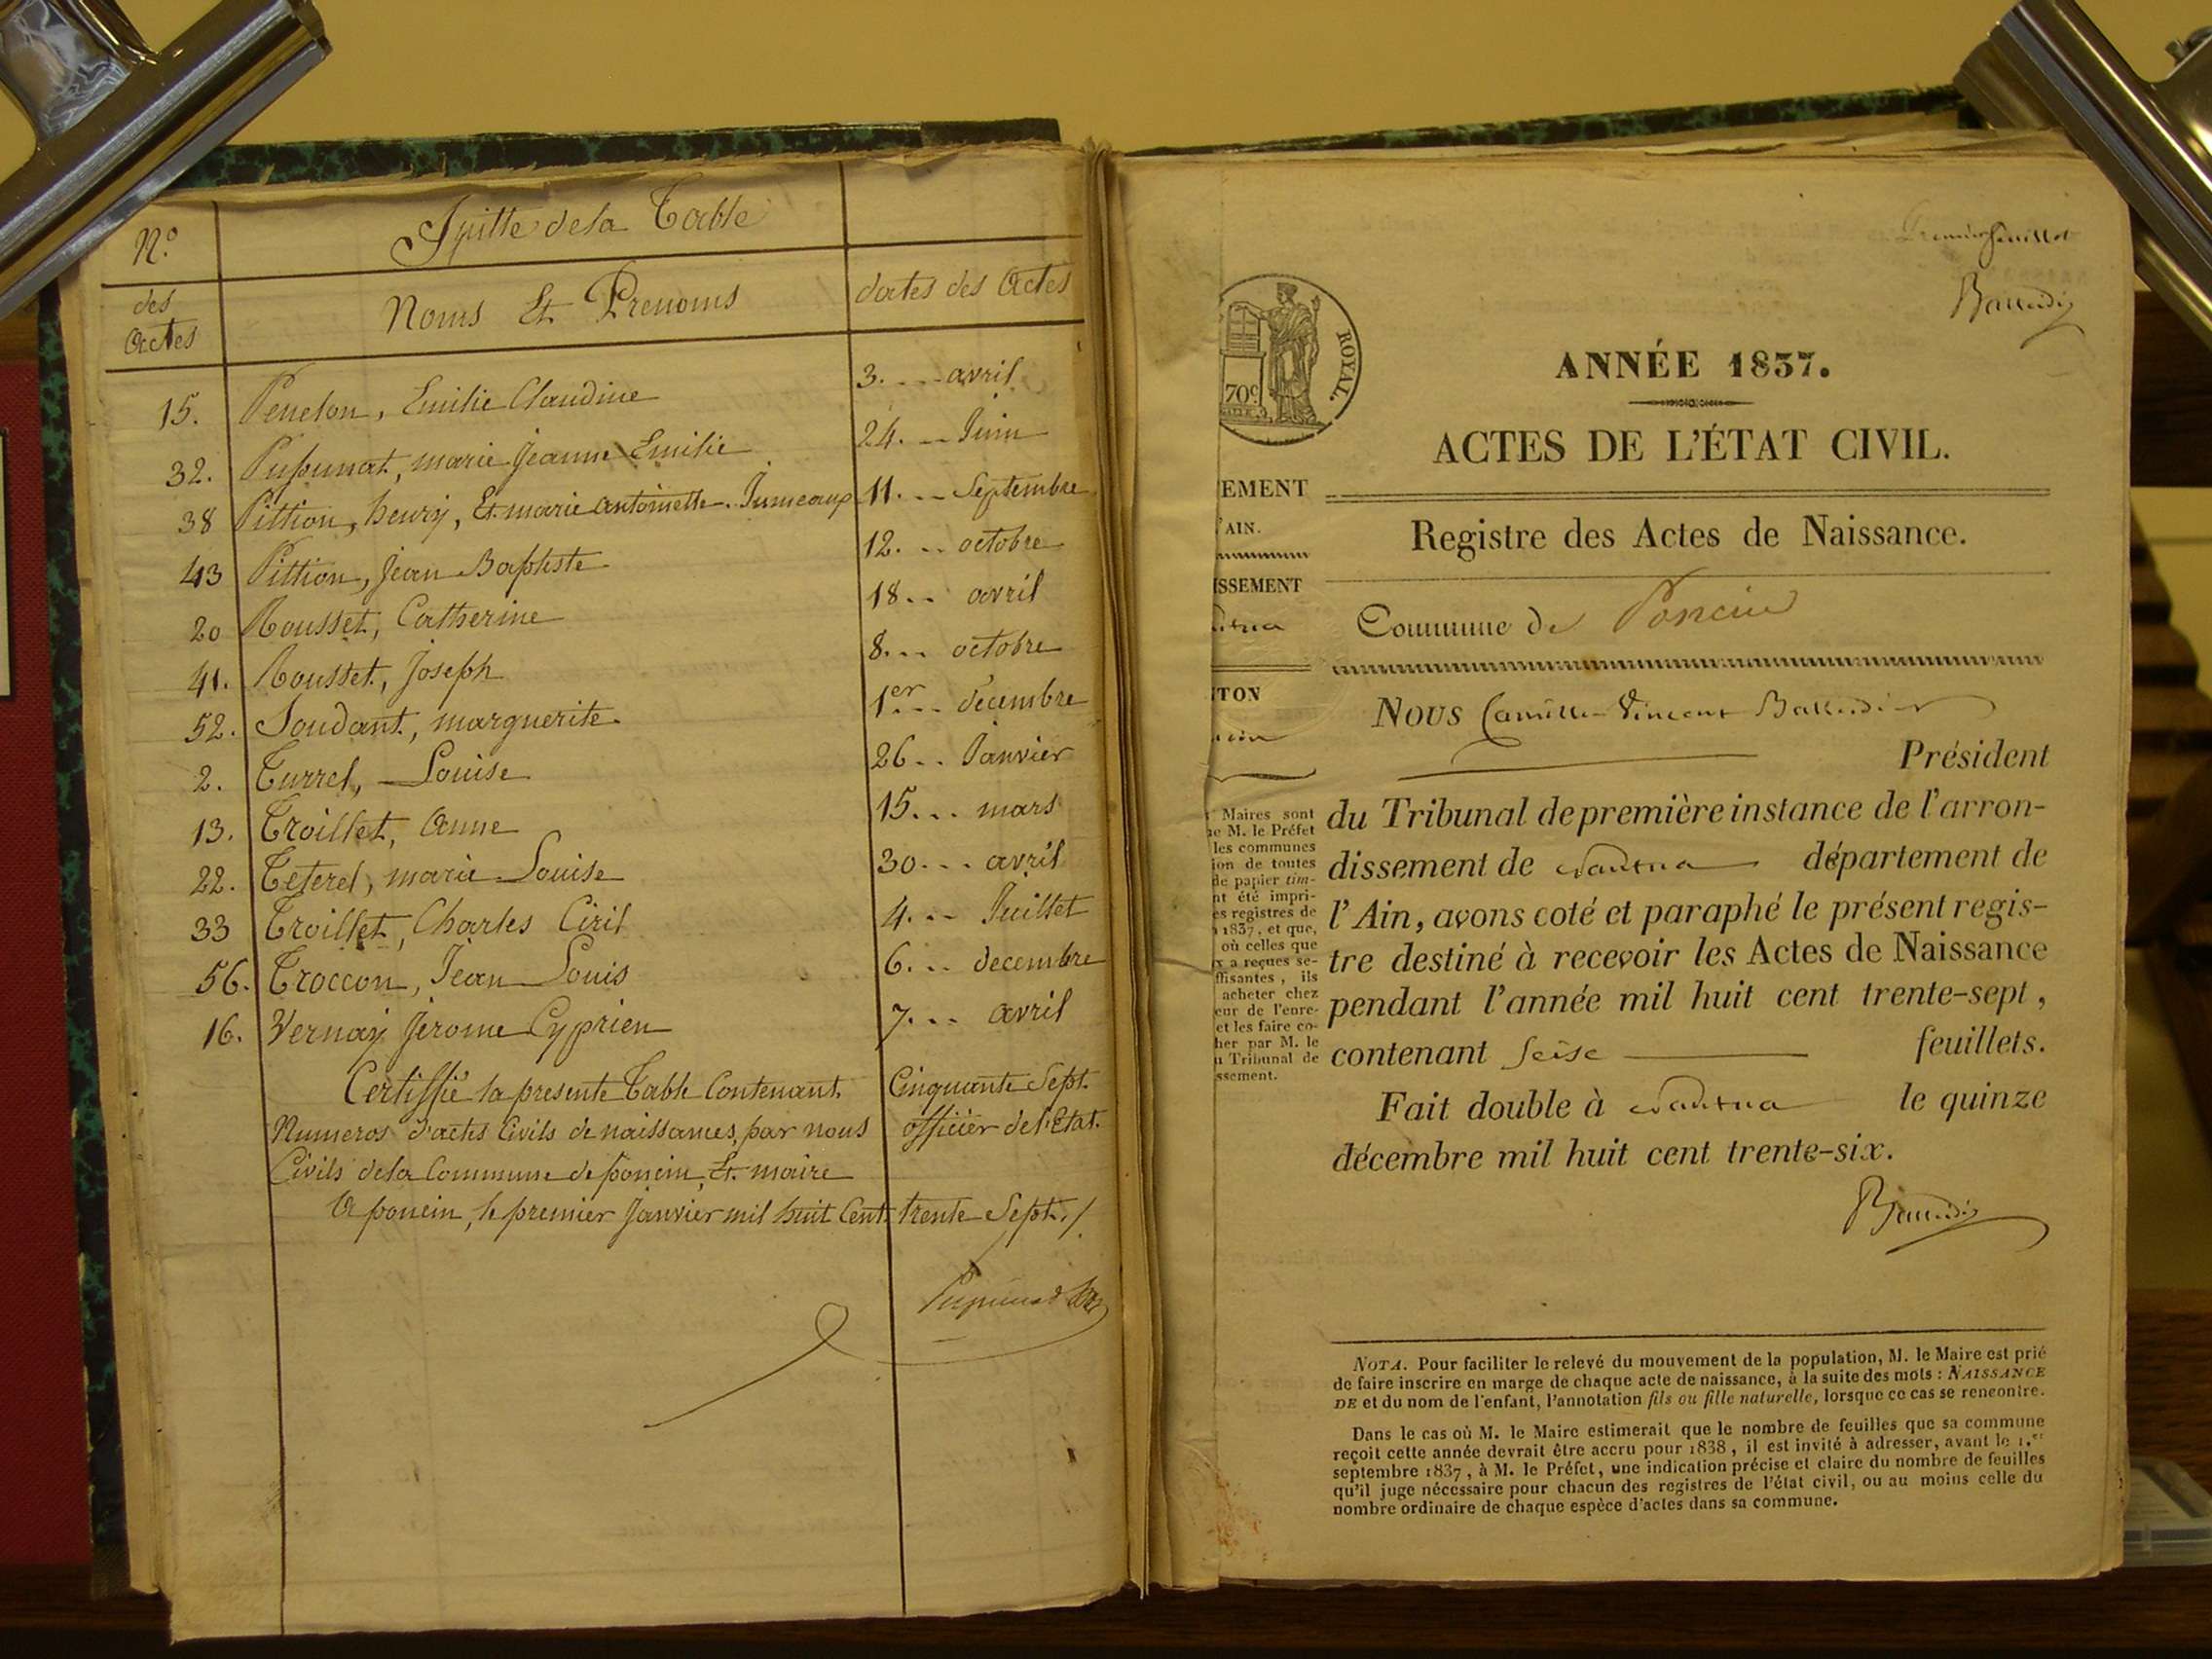 N.º
Suitte de la Table
des
Actes
Noms Et Prenoms
dates des Actes
15. Penelon, Emilie Claudine 3. avril
32. Pupunat, marie Jeanne Emilie 24. Juin
38 Pittion, henry, Et marie antoinette. Jumeaux 11. Septembre
43 Pittion, Jean Baptiste 12. octobre
20 Rousset, Catherine 18. avril
41. Rousset, Joseph 8. octobre
52. Soudant, marguerite. 1er decembre
2. Turrel, Louise 26. Janvier
13. Troillet, anne 15. mars
22. Teterel, marie Louise 30. avril
33 Troillet, Charles Ciril 4. Juillet
56. Troccon, Jean Louis 6. decembre
16. Vernay Jerome Cyprien 7. avril
Certiffié la presente Table Contenant Cinquante Sept
Numeros d'actes Civils de naissances, par nous officier de l'Etat
Civils de la Commune de poncin, Et maire
A poncin, le premier Janvier mil huit Cent trente Sept./
Premier feuillet
ROYAL.
70c.
ANNÉE 1837.
ACTES DE L'ÉTAT CIVIL.
EMENT
'AIN.
Registre des Actes de Naissance.
ISSEMENT
Commune de Poncin
TON
Nous Camille Vincent
Président
du Tribunal de première instance de l'arron-
dissement de Nantua département de
l'Ain, avons coté et paraphé le présent regis-
tre destiné à recevoir les Actes de Naissance
pendant l'année mil huit cent trente-sept,
contenant seise feuillets.
Fait double à Nantua le quinze
décembre mil huit cent trente-six.
Maires sont
M. le Préfet
les communes
ion de toutes
de papier tim-
nt été impri-
es registres de
1837, et que,
où celles que
x a reçues se-
ffisantes, ils
acheter chez
eur de l'enre-
et les faire co-
her par M. le
u Tribunal de
ssement.
NOTA. Pour faciliter le relevé du mouvement de la population, M. le Maire est prié
de faire inscrire en marge de chaque acte de naissance, à la suite des mots : NAISSANCE
DE et du nom de l'enfant, l'annotation fils ou fille naturelle, lorsque ce cas se rencontre.
Dans le cas où M. le Maire estimerait que le nombre de feuilles que sa commune
reçoit cette année devrait être accru pour 1838, il est invité à adresser, avant le 1.er
septembre 1837, à M. le Préfet, une indication précise et claire du nombre de feuilles
qu'il juge nécessaire pour chacun des registres de l'état civil, ou au moins celle du
nombre ordinaire de chaque espèce d'actes dans sa commune.